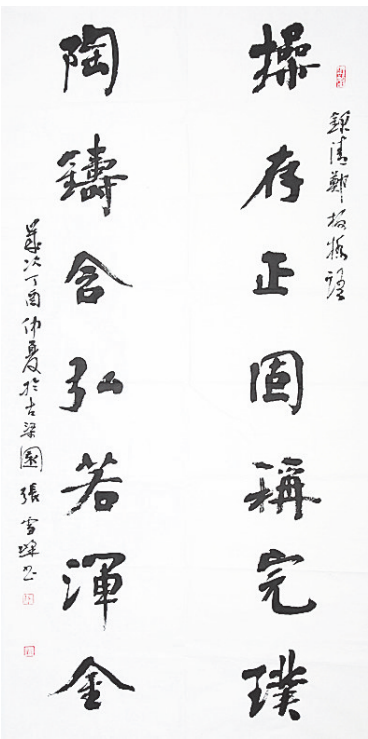 操存正固稱完璞
錄清鄭板橋語
陶鑄含弘若渾金
歲次丁酉仲夏於古梁園張雪